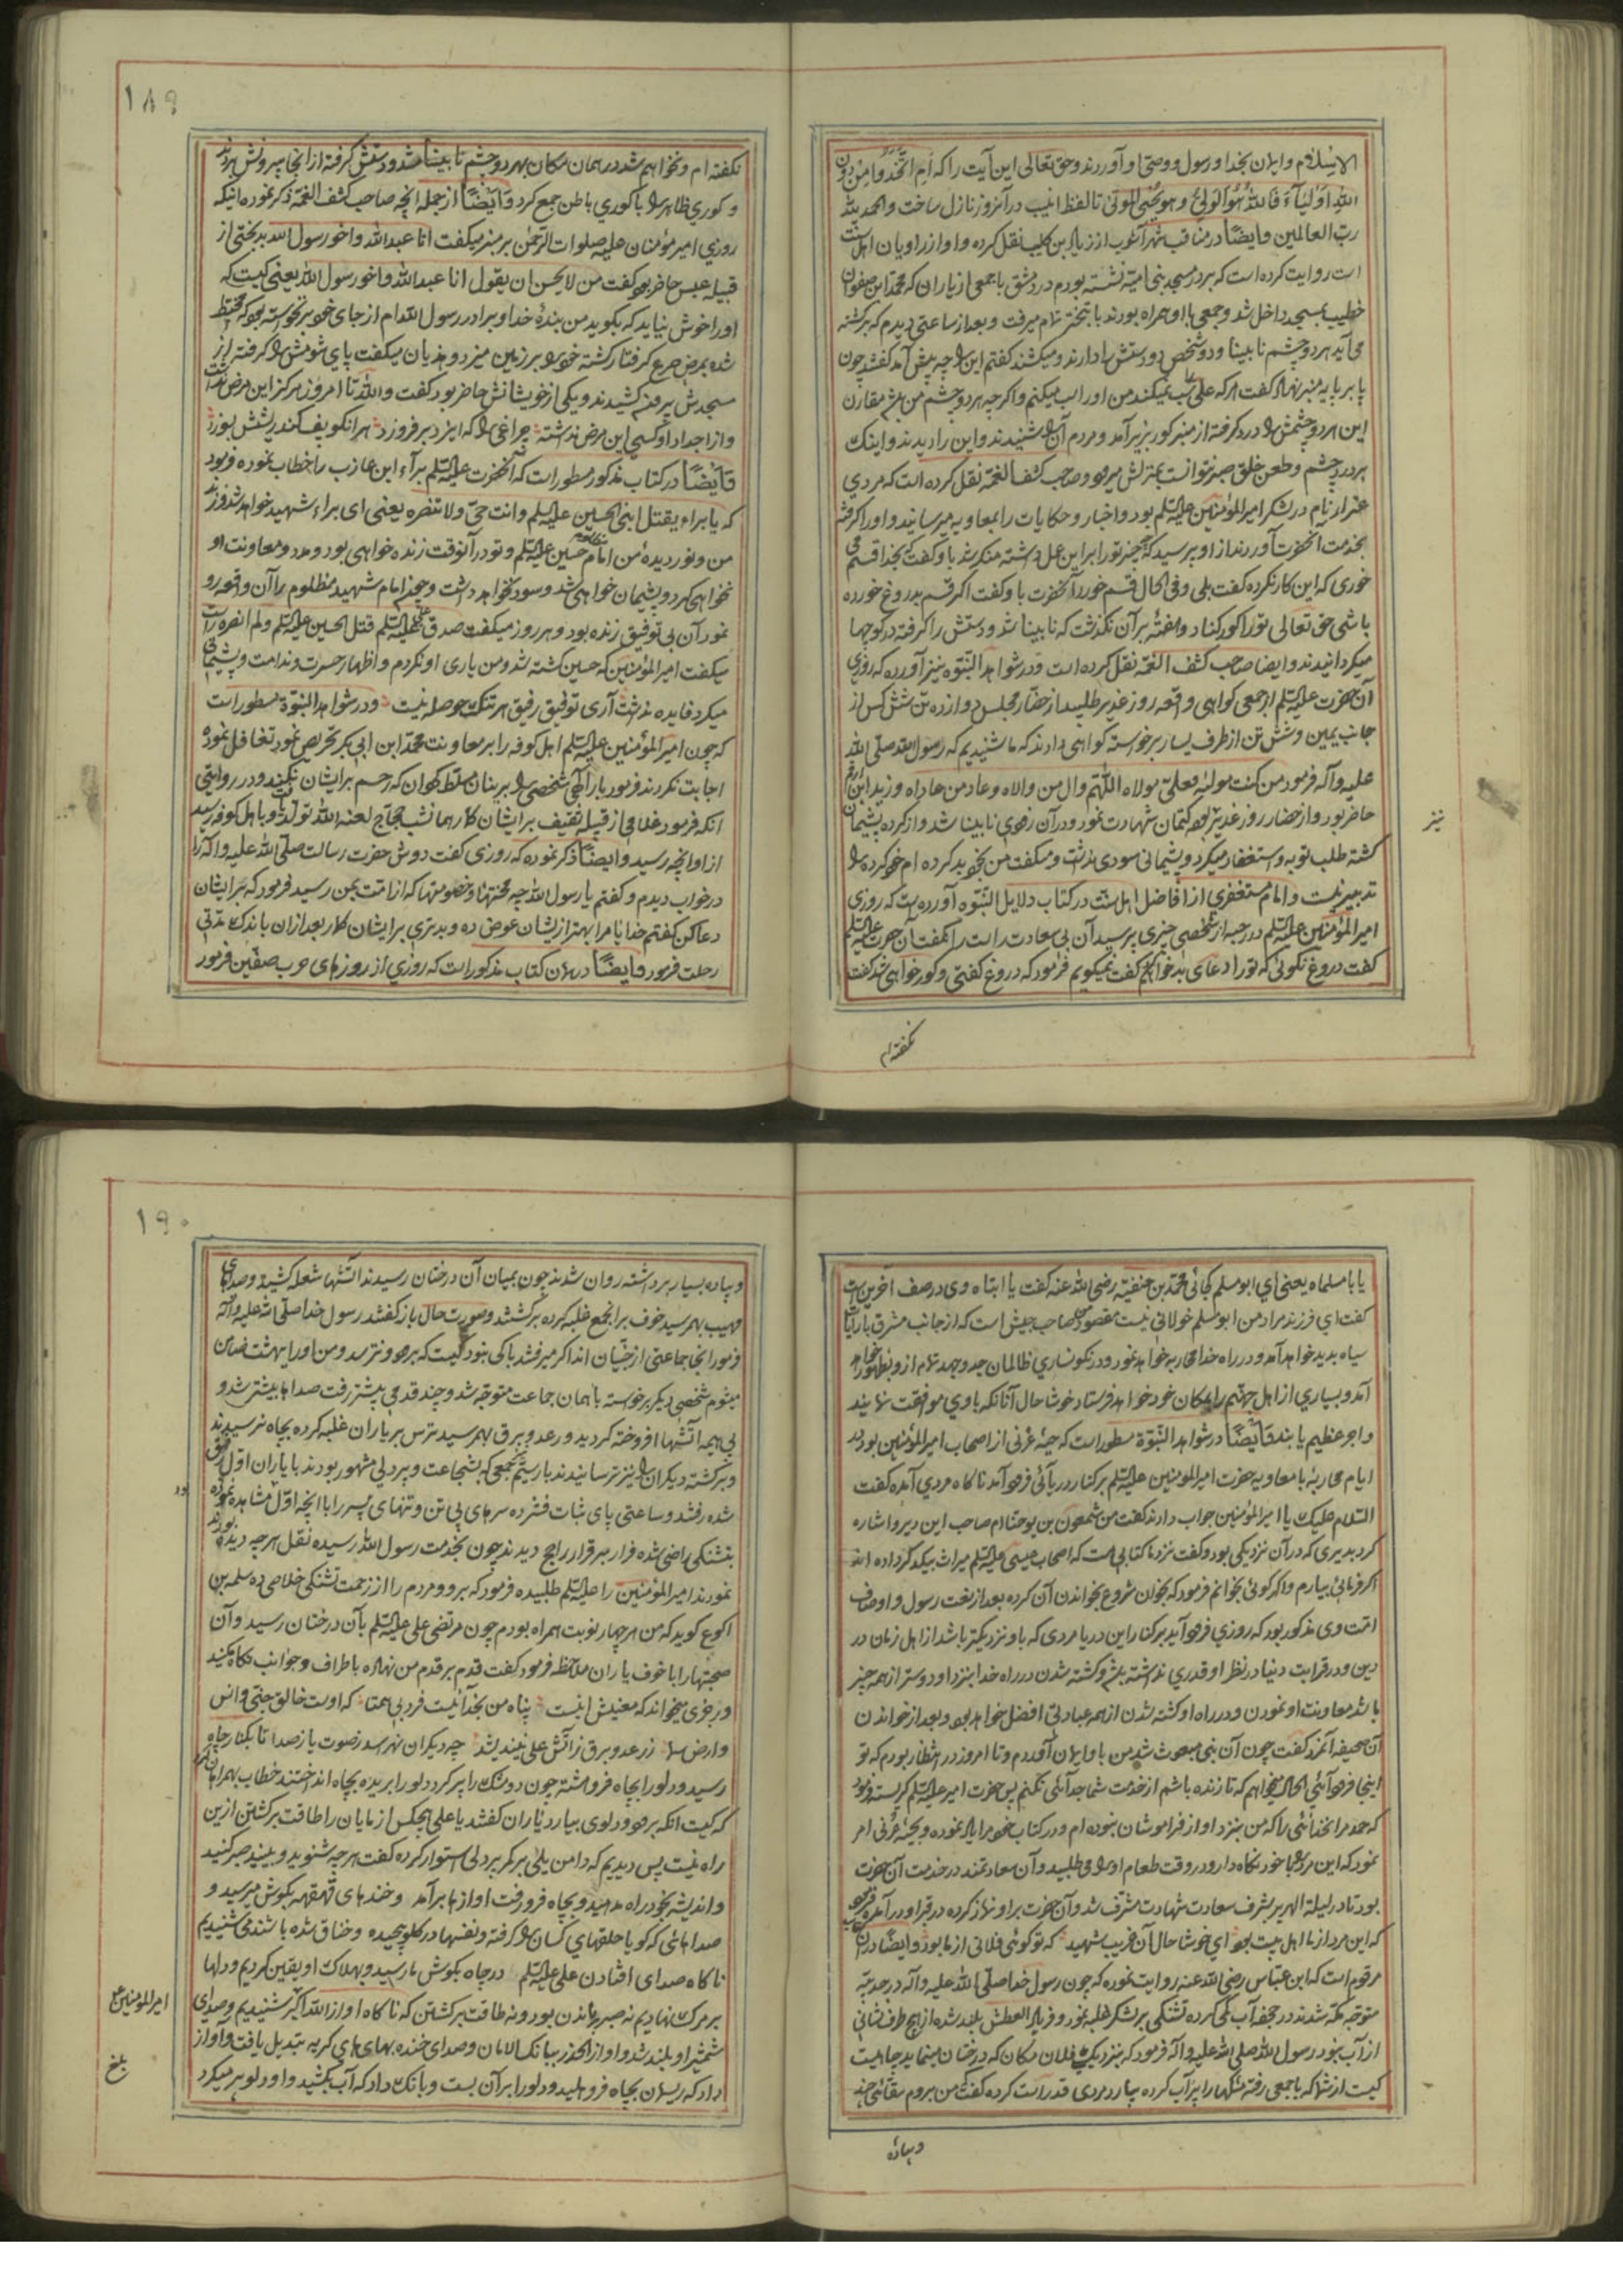 الاسلام وایمان بخدا و رسول و وصی او آوردند و حق تعالی این آیت را که أم اتخذوا من دون
الله اولیآء فالله هو الولی و هو یحیی الموتی تا لفظ انیب در آنروز نازل ساخت والحمد لله
رب العالمین وایضاً در مناقب شهر آشوب از زیاد بن کلیب نقل کرده و او از راویان اهل سنت
است روایت کرده است که بر در مسجد بنی امیه نشسته بودم در دمشق با جمعی از یاران که محمد ابن صفوان
خطیب بمسجد داخل شد و جمعی با او همراه بودند با تبختر تمام میرفت و بعد از ساعتی دیدم که برگشته
می آید هر دو چشم نابینا و دو شخص دو دستش را دارند و میکشند گفتم این را چه پیش آمد گفتند چون
پا بر پایه منبر نهاد گفت هر که علی را سب نمیکند من او را سب میکنم و اگر چه هر دو چشم من مقارن
این هر دو چشمش درد گرفته از منبر کور بزیر آمد و مردم آن را شنیدند و این را دیدند و اینک
بر درد چشم و طعن خلق صبر نتوانست بمنزلش میرود و صاحب کشف الغمه نقل کرده است که مردی
عیزار نام در لشکر امیرالمؤمنین علیه السلم بود و اخبار و حکایات را بمعاویه میرسانید و او را گرفته
بخدمت آنحضرت آوردند از او پرسید که چه چیز تو را بر این عمل داشته منکر شد با و گفت که بخدا قسم می
خوری که این کار نکرده گفت بلی و فی الحال قسم خورد آنحضرت باو گفت اگر قسم بدروغ خورده
باشی حق تعالی تو را کور کناد و هفته بر آن نگذشت که نابینا شد و دستش را گرفته در کوچها
میگردانیدند و ایضا صاحب کشف الغمه نقل کرده است و در شواهد النبوه نیز آورده که روزی
آن حضرت علیه السلم از جمعی گواهی واقعه روز غدیر طلبید از حضار مجلس دوازده تن شش کس از
جانب یمین و شش تن از طرف یسار برخواسته گواهی دادند که ما شنیدیم که رسول الله صلی الله
علیه وآله فرمود من کنت مولاه فعلی مولاه اللهم وال من والاه و عاد من عاداه و زید ابن ارقم
حاضر بود و از حضار روز غدیر بود کتمان شهادت نمود و در آن زودی نابینا شد و از کرده پشیمان
گشته طلب توبه و استغفار میکرد و پشیمانی سودی نداشت و میگفت من بخود بد کرده ام خود کرده را
تدبیر نیست و امام مستغفری از افاضل اهل سنت در کتاب دلایل النبوه آورده است که روزی
امیرالمؤمنین علیه السلم در رحبه از شخصی چیزی پرسید آن بی سعادت راست را نگفت آن حضرت علیه السلم
گفت دروغ نگوئی که تو را دعای بد خواهم گفت نمیگویم فرمود که دروغ گفتی و کور خواهی شد گفت
نیز
نگفته ام
۱۸۹
نگفته ام و نخواهم شد در همان مکان بهر دو چشم نابینا شد و دستش گرفته از آنجا بیرونش بردند
و کوری ظاهر را با کوری باطن جمع کرد وایضاً از جمله آنچه صاحب کشف الغمه ذکر نموده آنکه
روزی امیر مؤمنان علیه صلوات الرحمن بر منبر میگفت انا عبدالله و اخو رسول الله بدبختی از
قبیله عبس حاضر بود گفت من لا یحسن ان یقول انا عبدالله و اخو رسول الله یعنی کیست که
او را خوش نیاید که بگوید من بندهٔ خدا و برادر رسول الله ام از جای خود برنخواسته بود که مختبط
شده بمرض صرع گرفتار گشته خود را بر زمین میزد و هذیان میگفت پای شومش را گرفته از
مسجدش بیرون کشیدند و یکی از خویشانش حاضر بود گفت والله تا امروز هرگز این مرض نداشت
و از اجداد او کسی این مرض نداشته چراغی را که ایزد بر فروزد هر آنکو پف کند ریشش بسوزد
وایضاً در کتاب مذکور مسطور است که آنحضرت علیه السلم برآء ابن عازب را خطاب نموده فرمود
که یا براء یقتل ابنی الحسین علیه السلم و انت حی و لا تنصره یعنی ای براء شهید خواهد شد فرزند
من و نور دیده من امام حسین علیه السلم و تو در آنوقت زنده خواهی بود و مدد و معاونت او
نخواهی کرد و پشیمان خواهی شد و سود نخواهد داشت و چون امام شهید مظلوم را آن واقعه رو
نمود آن بی توفیق زنده بود و هر روز میگفت صدق علی علیه السلم قتل الحسین علیه السلم و لم انصره راست
میگفت امیر المؤمنین که حسین کشته شد و من یاری او نکردم و اظهار حسرت و ندامت و پشیمانی
میکرد فایده نداشت آری توفیق رفیق هر تنک حوصله نیست و در شواهد النبوة مسطور است
که چون امیر المؤمنین علیه السلم اهل کوفه را بر معاونت محمد ابن ابی بکر تحریص نمود تغافل نموده
اجابت نکردند فرمود بار الهی شخصی را بر اینان مسلط گردان که رحم بر ایشان نکند و در روایتی
آنکه فرمود غلامی از قبیله ثقیف بر ایشان گمار همان شب حجاج لعنه الله تولد یافت و با هل کوفه رسید
از او آنچه رسید وایضاً ذکر نموده که روزی گفت دوش حضرت رسالت صلی الله علیه و آله را
در خواب دیدم و گفتم یا رسول الله چه محنتها و خصومتها که از امتت بمن رسید فرمود که بر ایشان
دعا کن گفتم خدایا مرا بهتر از ایشان عوض ده و بدتری بر ایشان گمار بعد از آن باندک مدتی
رحلت فرمود وایضاً در همان کتاب مذکور است که روزی از روزهای حرب صفین فرمود
یا با مسلماه یعنی ای ابو مسلم کجائی محمد بن حنفیه رضی الله عنه گفت یا ابتاه وی در صف آخرین است
گفت ای فرزند مراد من ابو مسلم خولانی نیست مقصود من صاحب جیش است که از جانب مشرق با رایات
سیاه پدید خواهد آمد و در راه خدا محاربه خواهد نمود و در نگونساری ظالمان جد و جهد تمام از و بظهور خواهد
آمد و بسیاری از اهل جهنم را بمکان خود خواهد فرستاد خوشا حال آنانکه با وی موافقت نمایند
و اجر عظیم یابند وایضاً در شواهد النبوة مسطور است که حبهٔ عرنی از اصحاب امیرالمؤمنین بود در
ایام محاربه با معاویه حضرت امیر المؤمنین علیه السلم بر کنار دریائی فرود آمد ناگاه مردی آمده گفت
السلام علیک یا امیر المؤمنین جواب دادند گفت من شمعون بن یوحنا ام صاحب این دیر و اشاره
کرد بدیری که در آن نزدیکی بود و گفت نزد ما کتابی هست که اصحاب عیسی علیه السلم میراث بیکدیگر داده اند
اگر فرمائی بیارم و اگر گوئی بخوانم فرمود که بخوان شروع بخواندن آن کرده بعد از نعت رسول و اوصاف
امت وی مذکور بود که روزی فرود آید بر کنار این دریا مردی که باو نزدیکتر باشد از اهل زمان در
دین و در قرابت دنیا در نظر او قدری نداشته باشد و کشته شدن در راه خدا بنزد او دوستر از همه چیز
باشد معاونت او نمودن و در راه او کشته شدن از همه عبادتی افضل خواهد بود و بعد از خواندن
آن صحیفه آنمرد گفت چون آن نبی مبعوث شد من باو ایمان آوردم و تا امروز در انتظار بودم که تو
اینجا فرود آئی الحال میخواهم که تا زنده باشم از خدمت شما جدائی نکنم پس حضرت امیر علیه السلم گریسته فرمود
که حمد مر خدائی را که من بنزد او از فراموشان نبوده ام و در کتاب خود مرا یاد نموده و بحبهٔ عرنی امر
نمود که این مرد را با خود نگاه دار و در وقت طعام او را می طلبید و آن سعادتمند در خدمت آن حضرت
بود تا در لیلة الهریر بشرف سعادت شهادت مشرف شد و آن حضرت بر او نماز کرده در قبر او در آمده فرمود
که این مرد از ما اهل بیت بود ای خوشا حال آن غریب شهید که تو گوئی فلانی از ما بود وایضاً در آن
مرقوم است که ابن عباس رضی الله عنه روایت نموده که چون رسول خدا صلی الله علیه و آله در حدیبیه
متوجه مکه شدند در جحفه آب کمی کرده تشنگی بر لشکر غلبه نمود و فریاد العطش بلند شده از هیچ طرف نشانی
از آب نبود رسول الله صلی الله علیه و آله فرمود که بنزدیک فلان مکان که درختان مینماید چاهیست
کیست از شما که با جمعی رفته مشکها را پر آب کرده بیارد مردی قد راست کرده گفت من بروم سقائی چند
و پیاده
۱۹۰
و پیاده بسیار برداشته روان شدند چون بمیان آن درختان رسیدند آتشها شعله کشید و صداهای
مهیب بهم رسید خوف بر آنجمع غلبه کرده برگشتند و صورت حال باز گفتند رسول خدا صلی الله علیه و آله
فرمود آنجا جماعتی از جنیان اند اگر میرفتند باکی نبود کیست که برود و نترسد و من او را بهشت ضامن
میشوم شخصی دیگر برخواسته با همان جماعت متوجه شد و چند قدمی پیشتر رفت صداها بیشتر شد و
بی هیمه آتشها افروخته گردید و رعد و برق بهم رسید ترس بر یاران غلبه کرده بچاه نرسیدند
و برگشته دیگران را نیز ترسانیدند بار سیم جمعی که بشجاعت و پردلی مشهور بودند با یاران اول رفیق
شده رفتند و ساعتی پای ثبات فشرده سرهای بی تن و تنهای بی سر را با آنچه اول مشاهده نموده بودند
بتشنگی راضی شده فرار بر قرار راجح دیدند چون بخدمت رسول الله رسیده نقل هر چه دیده
نمودند امیر المؤمنین را علیه السلم طلبیده فرمود که برو و مردم را از زحمت تشنگی خلاصی ده سلمه بن
اکوع گوید که من هر چهار نوبت همراه بودم چون مرتضی علی علیه السلم بآن درختان رسید و آن
صحبتها را با خوف یاران ملاحظه فرمود گفت قدم بر قدم من نهاده باطراف و جوانب نگاه مکنید
و رجزی میخواند که معنیش اینست پناه من بخدائیست فرد بی همتا که اوست خالق جنی و انس
و ارض سما ز رعد و برق ز آتش علی نیندیشد چه دیگران نهراسد ز صوت یا ز صدا تا بکنار چاه
رسید و دلو را بچاه فرو هشته چون دو مشک را پر کرد دلو را بریده بچاه انداختند خطاب بهمراهان
که کیست آنکه برود و دلوی بیارد یاران گفتند یا علی هیچکس از ما یان را طاقت برگشتن ازین
راه نیست پس دیدیم که دامن یلی بر کمر پردلی استوار کرده گفت هر چه شنوید و بینید صبر کنید
و اندیشه بخود راه مدهید و بچاه فرو رفت آوازها برآمد و خندهای قهقهه بگوش میرسید و
صداهائی که گویا حلقهای کسان را گرفته و نفسها در گلو پیچیده و خناق شده باشند می شنیدیم
ناگاه صدای افتادن علی علیه السلم در چاه بگوش ما رسید و بهلاک او یقین کردیم و دلها
بر مرگ نهادیم نه صبر ماندن بود و نه طاقت برگشتن که ناگاه آواز الله اکبر شنیدیم و صدای
شمشیر او بلند شد و آواز الحذر بیانک الامان و صدای خنده بهای های گریه تبدیل یافت و آواز
داد که ریسمان بچاه فرو هلید و دلو را بر آن بست و بانک داد که آب بکشید و او دلو پر میکرد
امیرالمؤمنین ع
بلغ